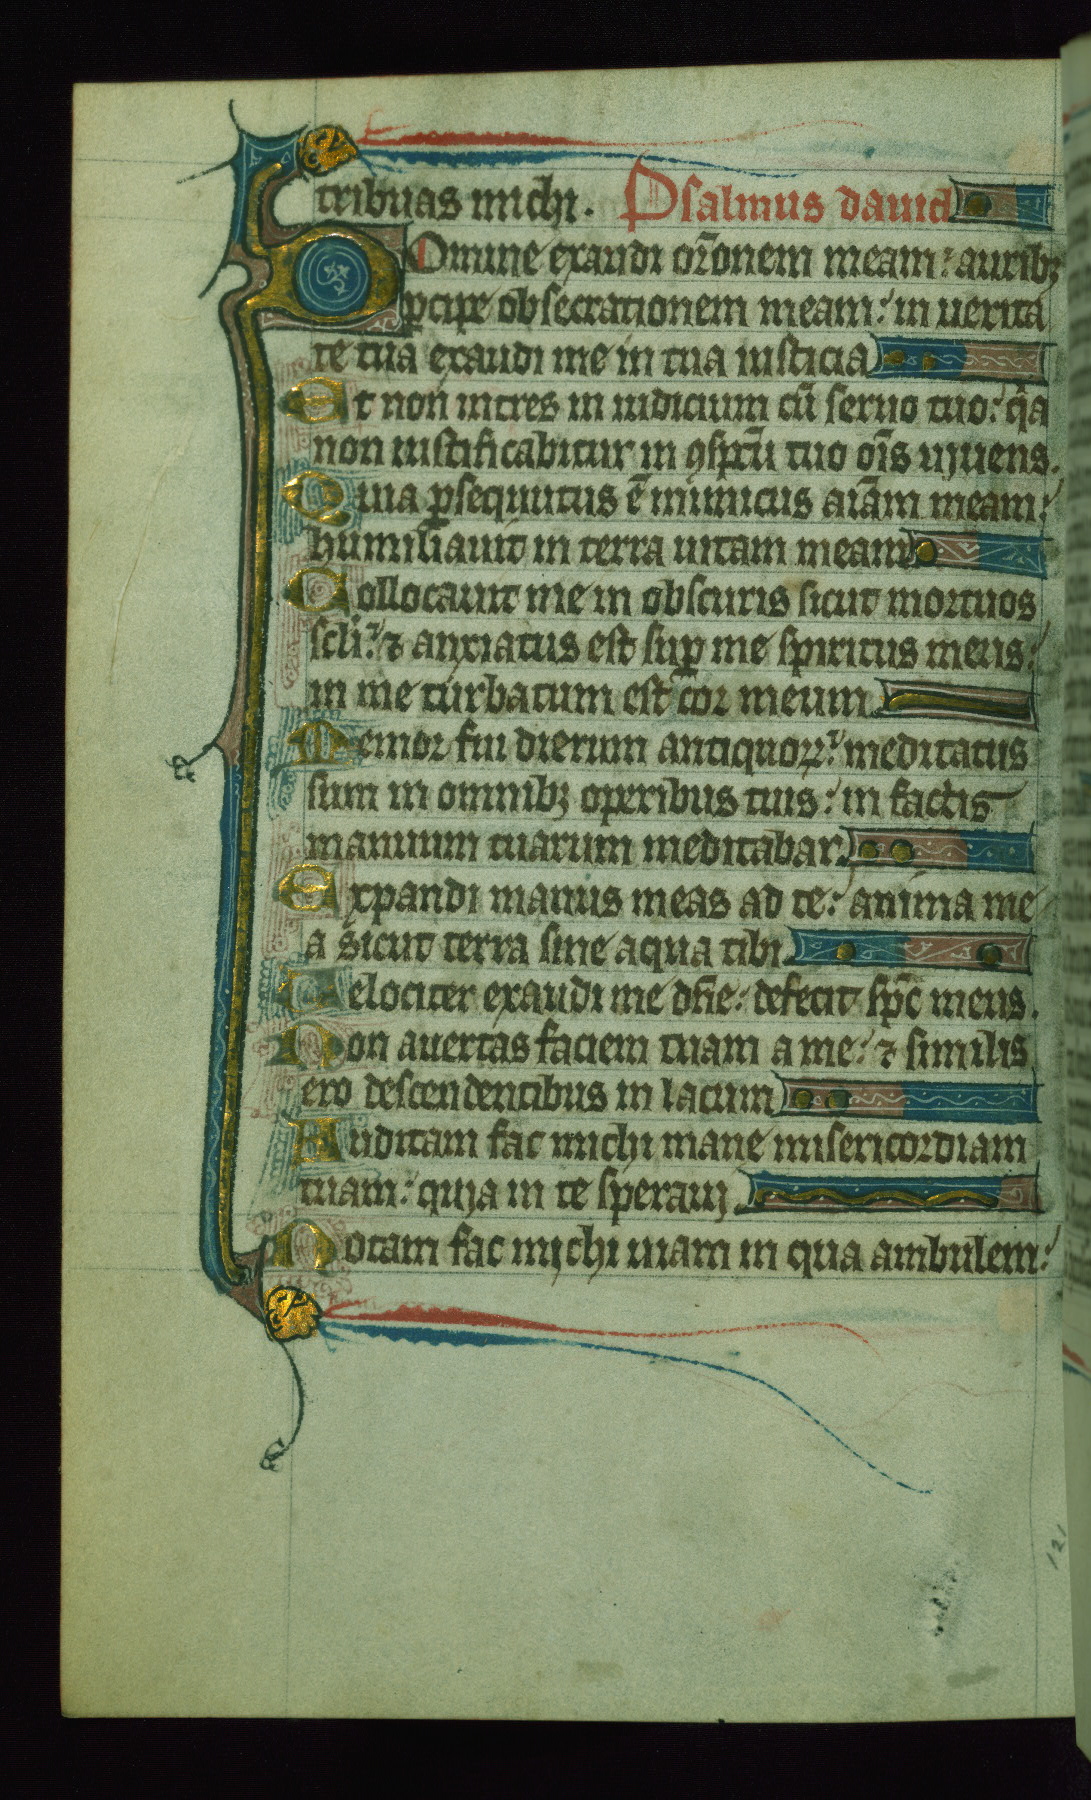 tribuas michi. Psalmus dauid
Domine exaudi or̄onem meam: aurib;
ꝑcipe obsecrationem meam: in uerita
te tua exaudi me in tua iusticia
Et non intres in iudicium cū seruo tuo: q̄a
non iustificabitur in ꝯsꝑctū tuo oīs uiuens.
Quia ꝑsequutus ē inimicus aīam meam:
humiliauit in terra uitam meam
Collocauit me in obscuris sicut mortuos
scli: ⁊ anxiatus est suꝑ me spiritus meus:
in me turbatum est cor meum
Memor fui dierum antiquoꝝ: meditatus
sum in omnib; operibus tuis: in factis
manuum tuarum meditabar.
Expandi manus meas ad te: anima me
a sicut terra sine aqua tibi.
Velociter exaudi me dn̄e: defecit sp̄c meus.
Non auertas faciem tuam a me: ⁊ similis
ero descendentibus in lacum
Auditam fac michi mane misericordiam
tuam: quia in te speraui
Notam fac michi uiam in qua ambulem:
121